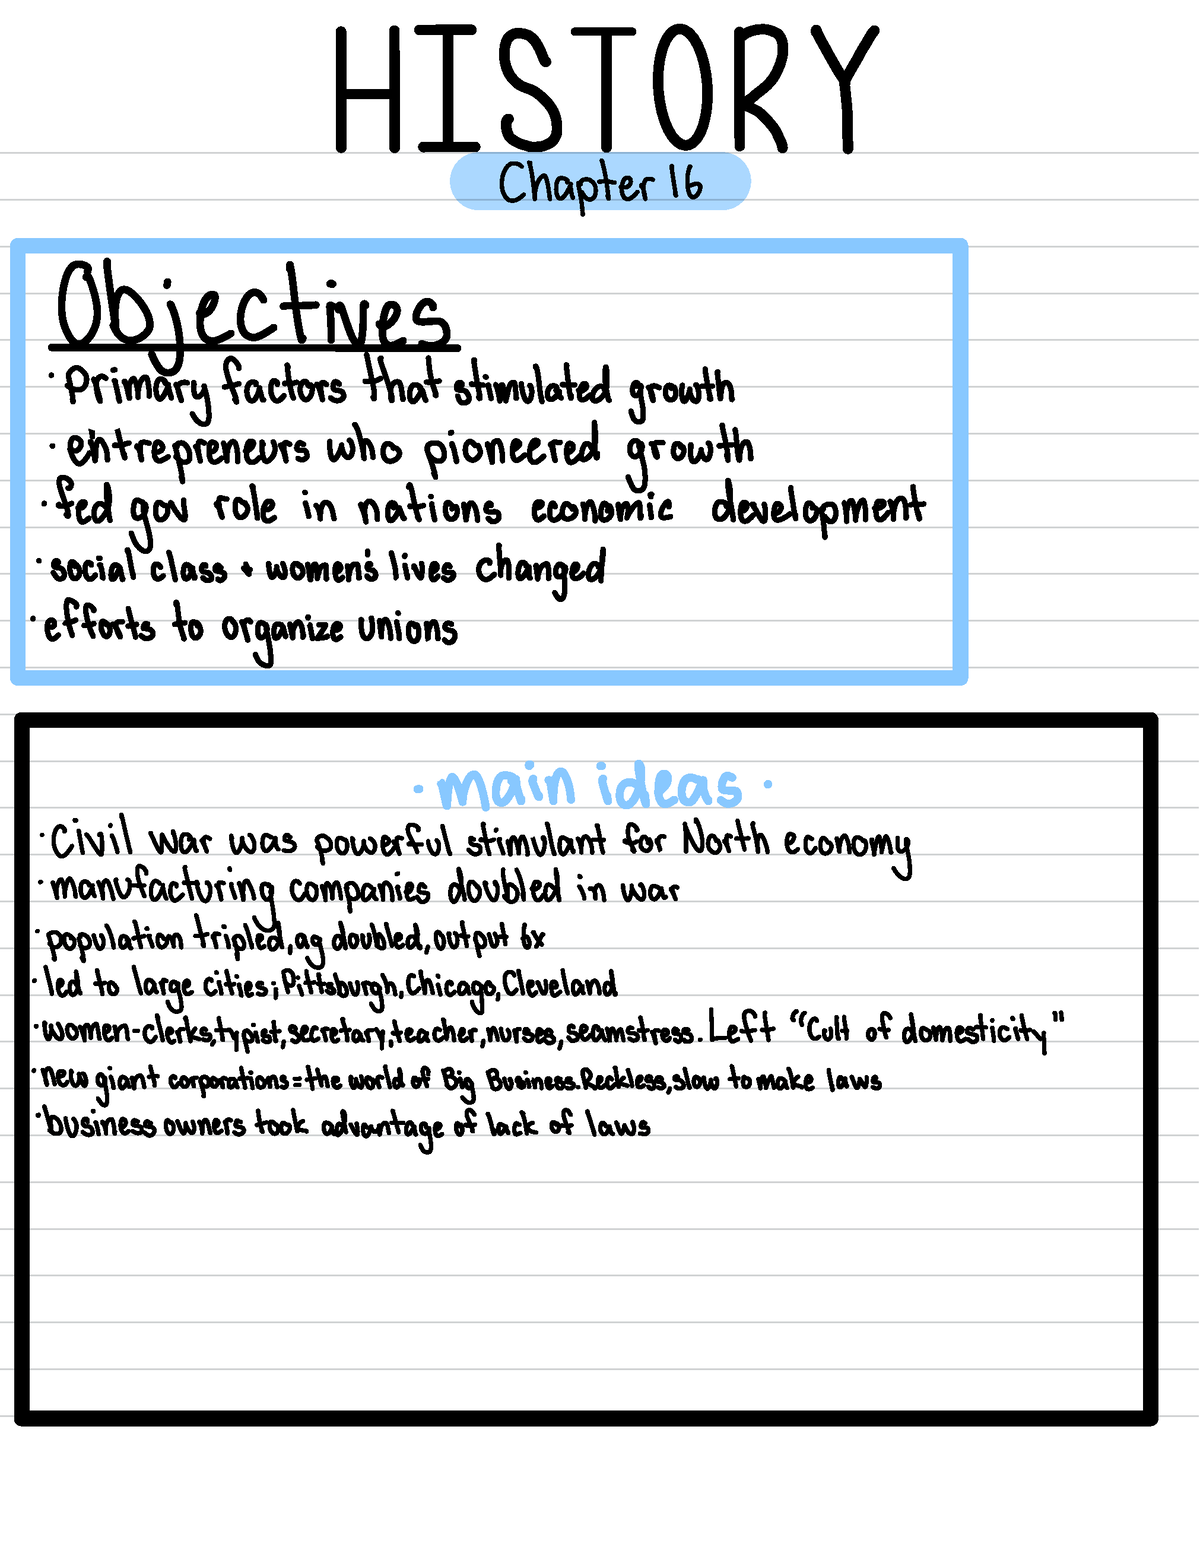 HISTORY
Chapter 16
Objectives
· Primary factors that stimulated growth
· entrepreneurs who pioneered growth
· fed gov role in nations economic development
· social class + women's lives changed
· efforts to organize unions
· main ideas ·
· Civil war was powerful stimulant for North economy
· manufacturing companies doubled in war
· population tripled, ag doubled, output 6x
· led to large cities; Pittsburgh, Chicago, Cleveland
· women-clerks, typist, secretary, teacher, nurses, seamstress. Left "Cult of domesticity"
· new giant corporations = the world of Big Business. Reckless, slow to make laws
· business owners took advantage of lack of laws